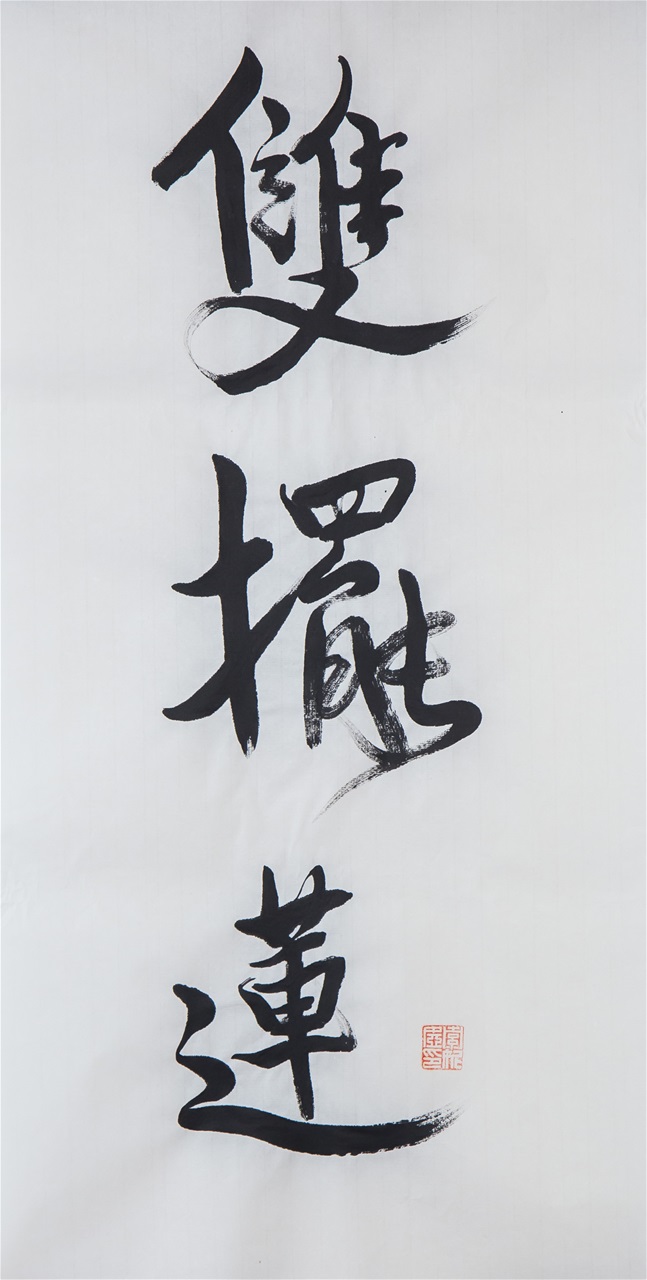 雙擺蓮